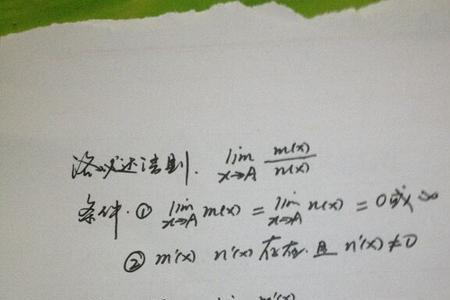 洛必达法则. lim x→A m(x)/n(x)
条件. ① lim x→A m(x) = lim x→A n(x) = 0或∞
② m'(x) n'(x) 存在. 且 n'(x)≠0
lim m'(x)